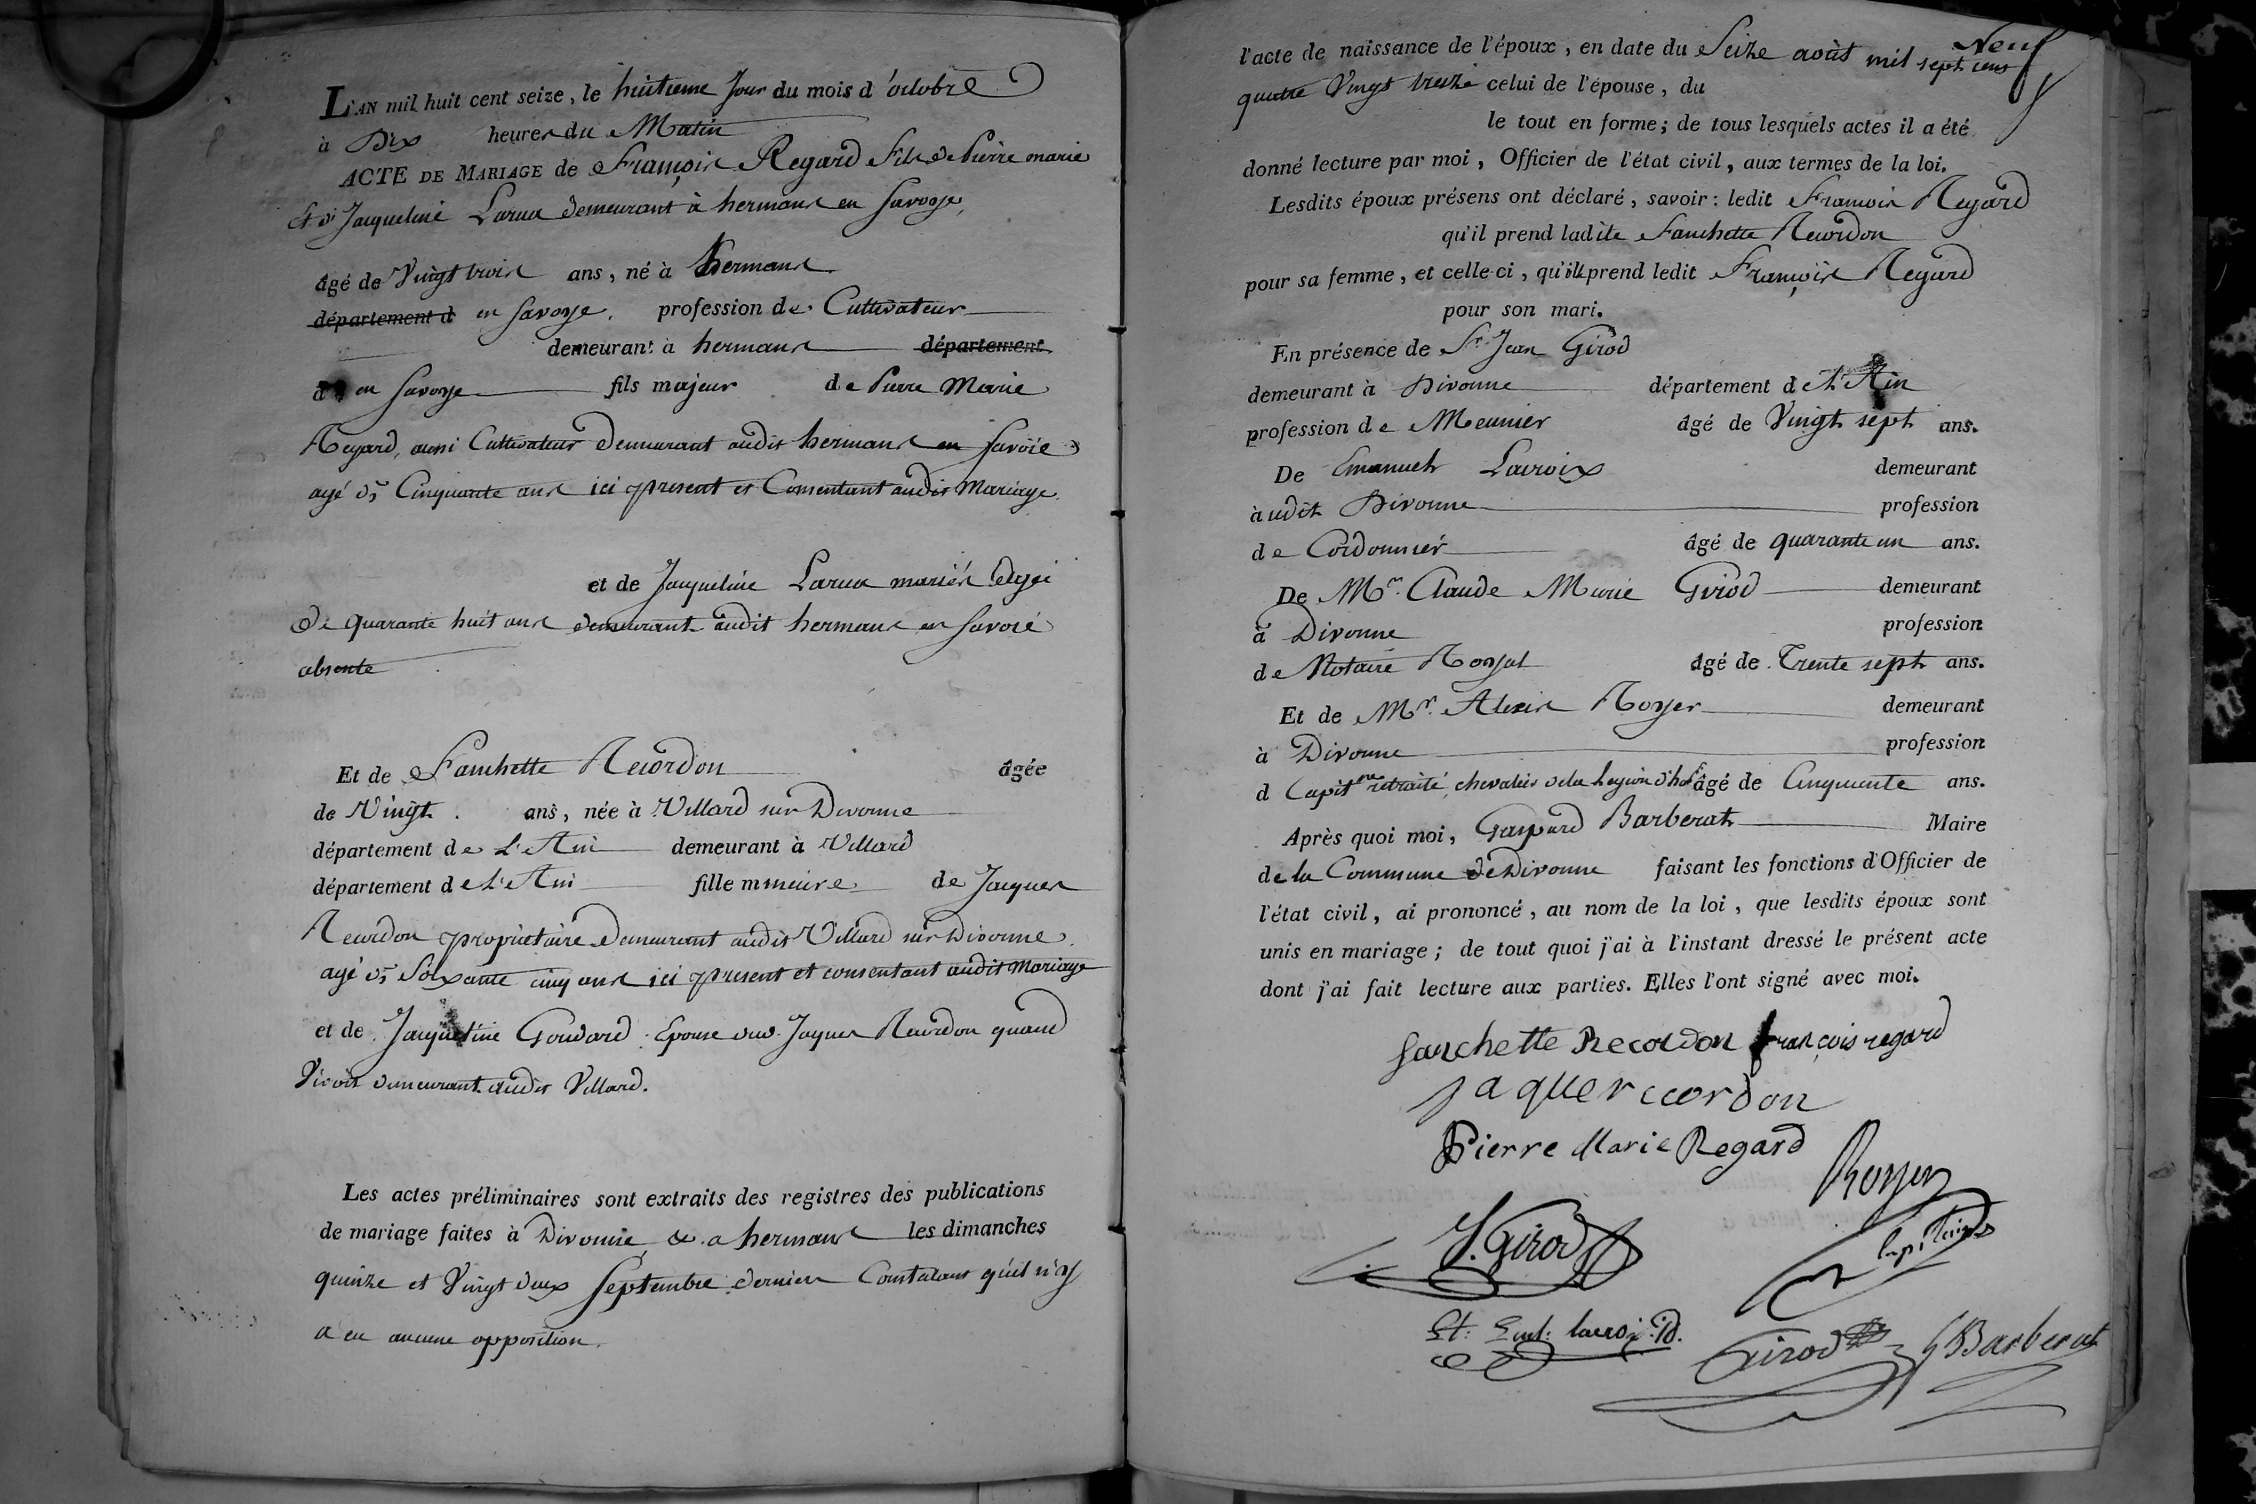 L'AN mil huit cent seize, le huitieme Jour du mois d'octobre
à Dix heures du Matin
ACTE DE MARIAGE de François Regard Fils de Pierre marie
et de Jacqueline Larua demeurant à hermans en Savoye,
âgé de Vingt trois ans, né à hermans
département d en Savoye. profession de Cultivateur
demeurant à hermans département
d en Savoye fils majeur de Pierre Marie
Regard, aussi Cultivateur demeurant audit hermans en Savoie
agé de Cinquante ans ici present et Consentant audit Mariage.
et de Jacqueline Larua mariés agée
de quarante huit ans demeurant audit hermans en Savoie
absente
Et de Fanchette Recordon âgée
de Vingt ans, née à Villard sur Divonne
département de L'Ain demeurant à Villard
département de L'Ain fille mineure de Jacques
Recordon propriétaire demeurant audit Villard sur Divonne.
agé de Soixante cinq ans ici present et consentant audit Mariage
et de Jaqueline Gouvard Epouse dud. Jaques Recordon quand
Vivoit demeurant audit Villard.
Les actes préliminaires sont extraits des registres des publications
de mariage faites à Divonne & a hermans les dimanches
quinze et Vingt deux Septembre dernier Constatant qu'il n'y
a eu aucune opposition.
Neuf
l'acte de naissance de l'époux, en date du Seize août mil sept cens
quatre Vingt treize celui de l'épouse, du
le tout en forme; de tous lesquels actes il a été
donné lecture par moi, Officier de l'état civil, aux termes de la loi.
Lesdits époux présens ont déclaré, savoir: ledit François Regard
qu'il prend ladite Fanchette Recordon
pour sa femme, et celle-ci, qu'elle prend ledit François Regard
pour son mari.
En présence de Sr. Jean Girod
demeurant à Divonne département de L'Ain
profession de Meunier âgé de Vingt sept ans.
De Emanuel Lacroix demeurant
audit Divonne profession
de Cordonnier âgé de quarante un ans.
De Mr. Claude Marie Girod demeurant
à Divonne profession
de Notaire Royal âgé de Trente sept ans.
Et de Mr. Alexis Royer demeurant
à Divonne profession
d Capitne retraité, chevalier de la Legion d'hor âgé de Cinquante ans.
Après quoi moi, Gaspard Barberat Maire
de la Commune de Divonne faisant les fonctions d'Officier de
l'état civil, ai prononcé, au nom de la loi, que lesdits époux sont
unis en mariage; de tout quoi j'ai à l'instant dressé le présent acte
dont j'ai fait lecture aux parties. Elles l'ont signé avec moi.
fanchette Recordon françois regard
jaque recordon
Pierre Marie Regard
Royer
J. Girod
Capitaine
Et: Eml: lacroix
Girod GBarberat